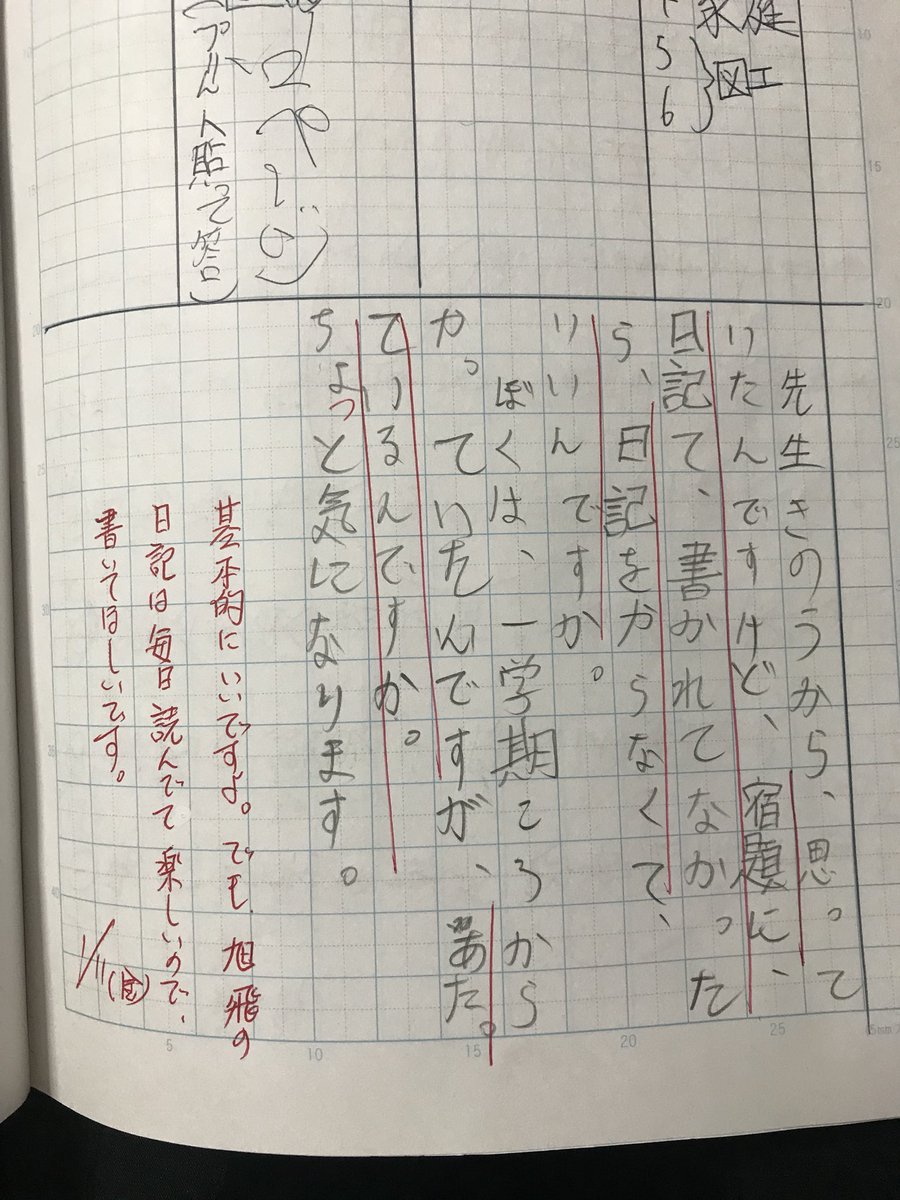 家庭
5
6
図工
先生きのうから、思って
いたんですけど、宿題に、
日記て、書かれてなかった
ら、日記をからなくて、
いいんですか。
ぼくは、一学期ころから
やっていたんですが、あたっ
ているんですか。
ちょっと気になります。
基本的にいいですよ。でも、旭飛の
日記は毎日読んでて楽しいので、
書いてほしいです。
1/11(金)
貼って答)